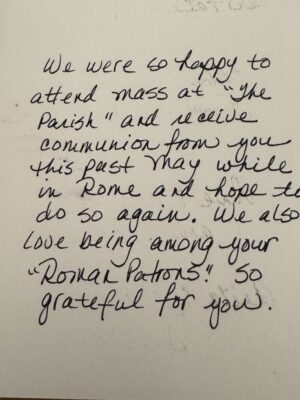 We were so happy to
attend mass at "The
Parish" and receive
communion from you
this past May while
in Rome and hope to
do so again. We also
love being among your
"Roman Patrons." So
grateful for you.